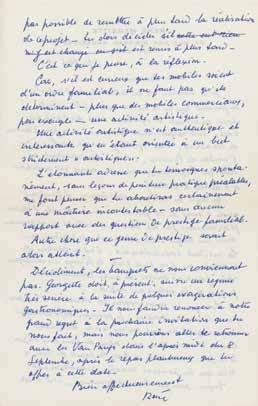 pas possible de remettre à plus tard la réalisation
de ce projet - tu dois décider si
est changé ou s'il est remis à plus tard -
C'est ce que je pense, à la réflexion.
Car, s'il est curieux que tes mobiles soient
d'un ordre familial, il ne faut pas qu'ils
déterminent - plus que des mobiles commerciaux,
par exemple - une activité artistique.
Une activité artistique n'est authentique et
intéressante qu'en étant orientée à un but
strictement "artistique".
L'étonnante adresse que tu témoignes sponta-
nément, sans leçons de peinture pratique préalables,
me fait penser que tu aboutiras certainement
à une maîtrise incontestable - sans aucun
rapport avec des question de prestige familial.
Autre chose que ce genre de prestige serait
alors atteint.
Décidément, les banquets ne nous conviennent
pas. Georgette doit, à présent, suivre un régime
très sévère à la suite de quelques exagérations
gastronomiques. Il nous faudra renoncer à notre
grand regret à la prochaine invitation que tu
nous fait, mais nous pourrions aller te retrouver
avec les Van Parys dans l'après midi du 8
Septembre, après le repas plantureux que tu
offres à cette date.
Bien affectueusement
René